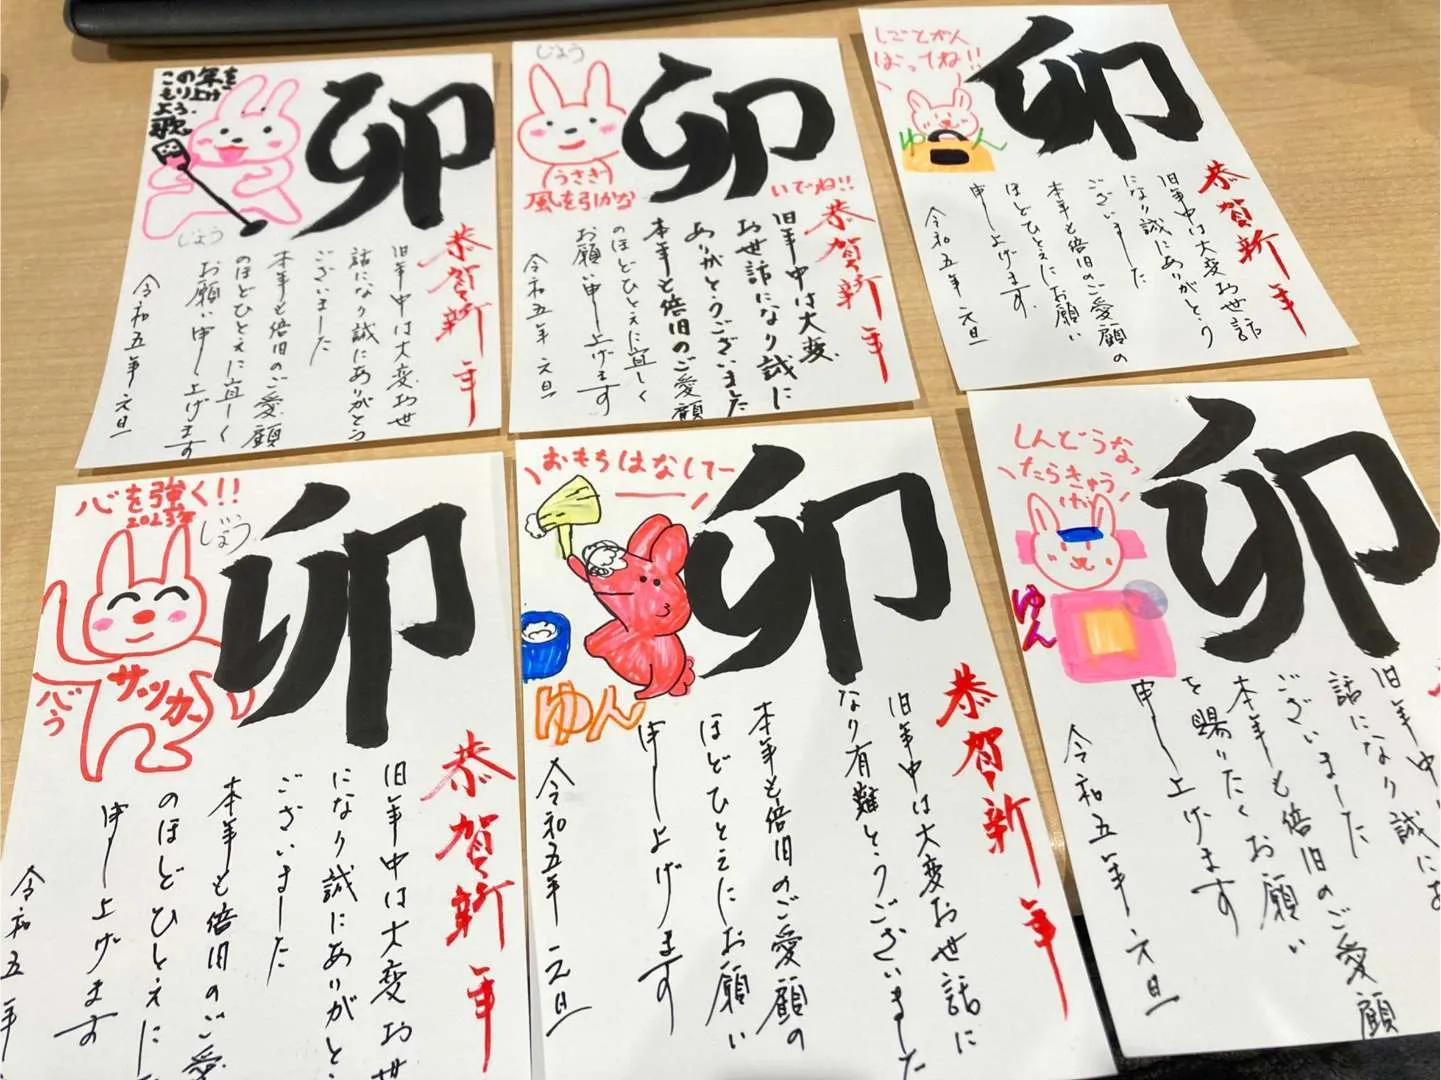 この年を
もり上げ
よう
歌
じょう
卯
恭賀新年
旧年中は大変お世
話になり誠にありがとう
ございました
本年も倍旧のご愛顧
のほどひとえに宜しく
お願い申し上げます
令和五年 元旦
じょう
うさぎ
風を引かな
いでね!!
卯
恭賀新年
旧年中は大変
お世話になり誠に
ありがとうございました
本年も倍旧のご愛顧
のほどひとえに宜しく
お願い申し上げます
令和五年 元旦
しごとがん
ばってね!!
ゆん
卯
恭賀新年
旧年中は大変お世話
になり誠にありがとう
ございました
本年も倍旧のご愛顧の
ほどひとえにお願い
申し上げます
令和五年 元旦
心を強く!!
2023年
じょう
サッカー
卯
恭賀新年
旧年中は大変お世
になり誠にありがと
ございました
本年も倍旧のご愛
のほどひとえに
申し上げます
令和五年
おもちはなしてー
ゆん
卯
恭賀新年
旧年中は大変お世話に
なり有難とうございました
本年も倍旧のご愛顧の
ほどひとえにお願い
申し上げます
令和五年 元旦
しんどうなっ
たらきゅう
ゆん
卯
旧年中
話になり誠にあ
ございました
本年も倍旧のご愛顧
を賜りたくお願い
申し上げます
令和五年 元旦